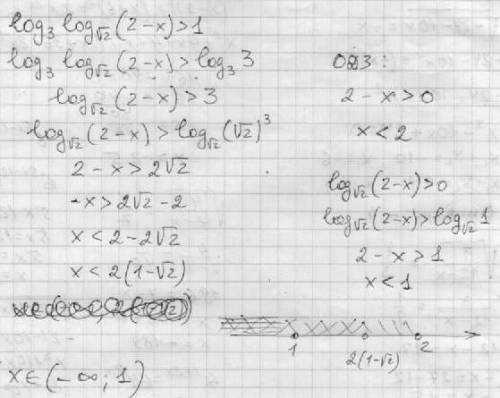 log₃ log_√2 (2-x) > 1
log₃ log_√2 (2-x) > log₃ 3
log_√2 (2-x) > 3
log_√2 (2-x) > log_√2 (√2)³
2 - x > 2√2
-x > 2√2 - 2
x < 2 - 2√2
x < 2(1-√2)
x ∈ (-∞; 1)
ОДЗ:
2 - x > 0
x < 2
log_√2 (2-x) > 0
log_√2 (2-x) > log_√2 1
2 - x > 1
x < 1
1 2(1-√2) 2